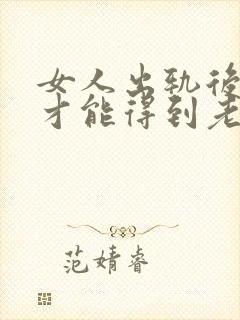 女人出轨後
才能得到老
范婧睿